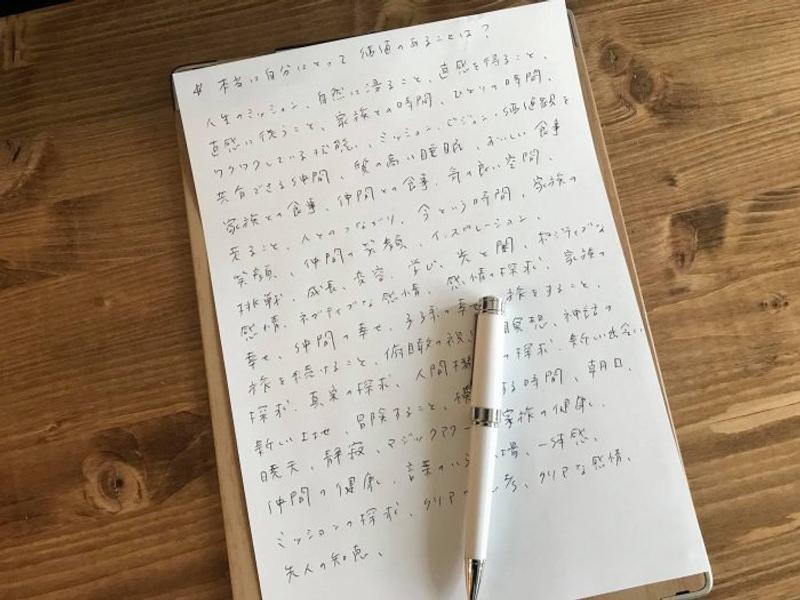 ☆ 本当に自分にとって価値のあることは?
人生のミッション、自然に浸ること、直感を得ること、
直感に従うこと、家族との時間、ひとりの時間、
ワクワクしている状態、ミッション・ビジョン・価値観を
共有できる仲間、質の高い睡眠、おいしい食事
家族との食事、仲間との食事、気の良い空間、
走ること、人とのつながり、今という時間、家族の
笑顔、仲間の笑顔、インスピレーション、
挑戦、成長、変容、学び、光と闇、ポジティブな
感情、ネガティブな感情、感情の探求、家族の
幸せ、仲間の幸せ、子孫の幸せ 旅をすること、
旅を続けること、俯瞰の視 瞑想、神話の
探求、真実の探求、人間 の探求、新しい出会い
新しい 、冒険すること、 する時間、朝日、
暁天、静寂、マジックアワー 家族の健康、
仲間の健康、言葉の 場、一体感、
ミッションの探求、クリア 、クリアな感情、
先人の知恵、